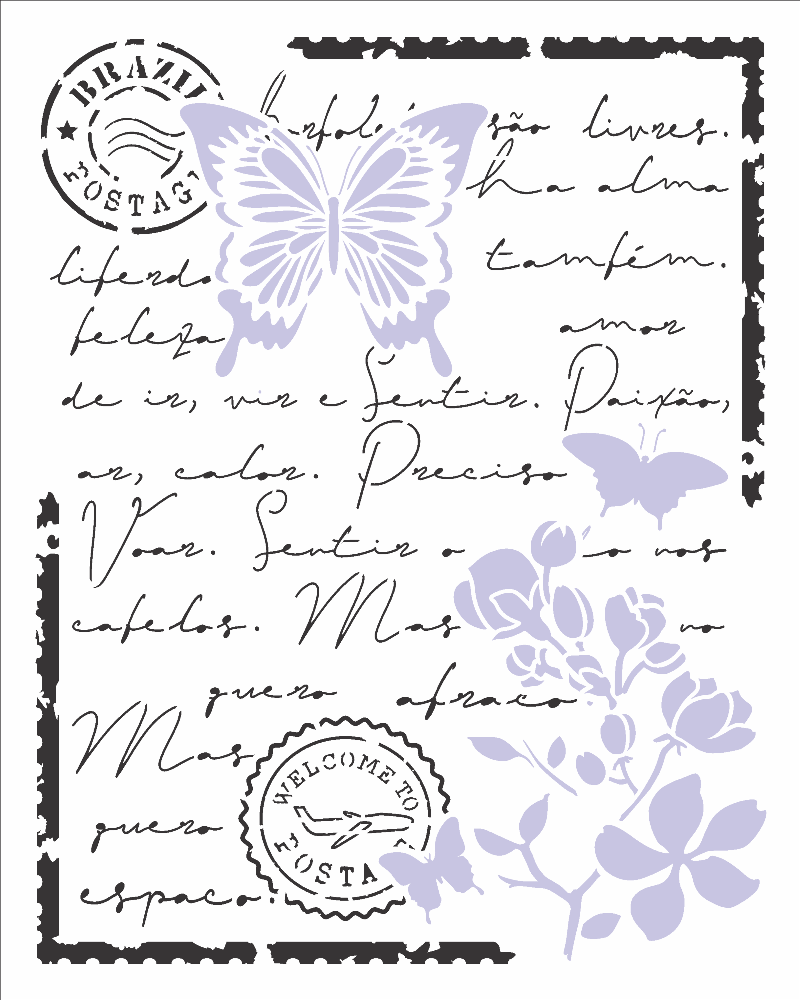 BRAZIL
POSTAG
são livres.
ha alma
liberda
também.
beleza
amor
de ir, vir e Sentir. Paixão,
ar, calor. Preciso
Voar. Sentir o
nos
cabelos. Mas
no
quero abraço
Mas
WELCOME TO
POSTA
quero
espaço.